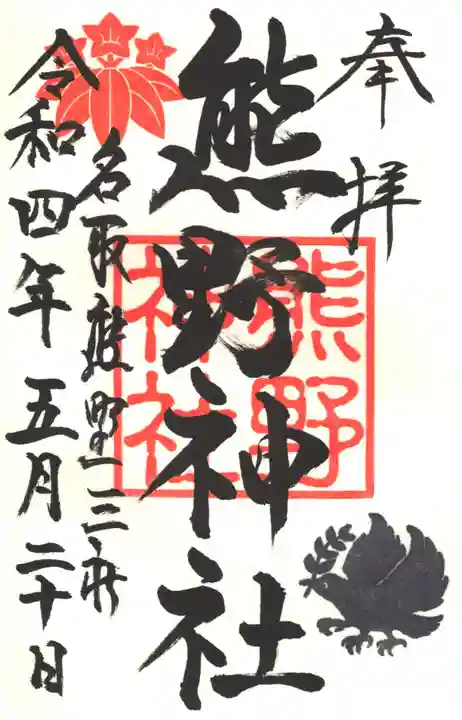 奉拝
熊野神社
熊野
神社
名取熊野三社
令和四年五月二十日